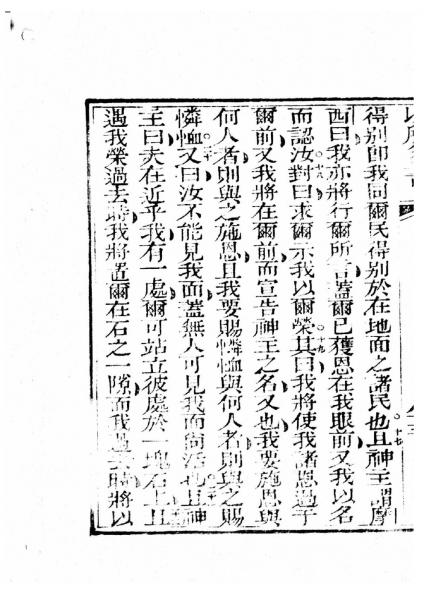 得別即我同爾民得別於在地面之諸民也○十七且神主謂摩
西曰我亦將行爾所言蓋爾已獲恩在我眼前又我以名
而認汝○十八對曰求爾示我以爾榮○十九其曰我將使我諸恩過于
爾前又我將在爾前而宣告神主之名又也我要施恩與
何人者則與之施恩且我要賜憐恤與何人者則與之賜
憐恤又曰汝不能見我面蓋無人可見我而尚活也且神
主曰夫在近乎我有一處爾可站立彼處於一塊石上且
遇我榮過去時我將置爾在石之一隙而我過去時將以